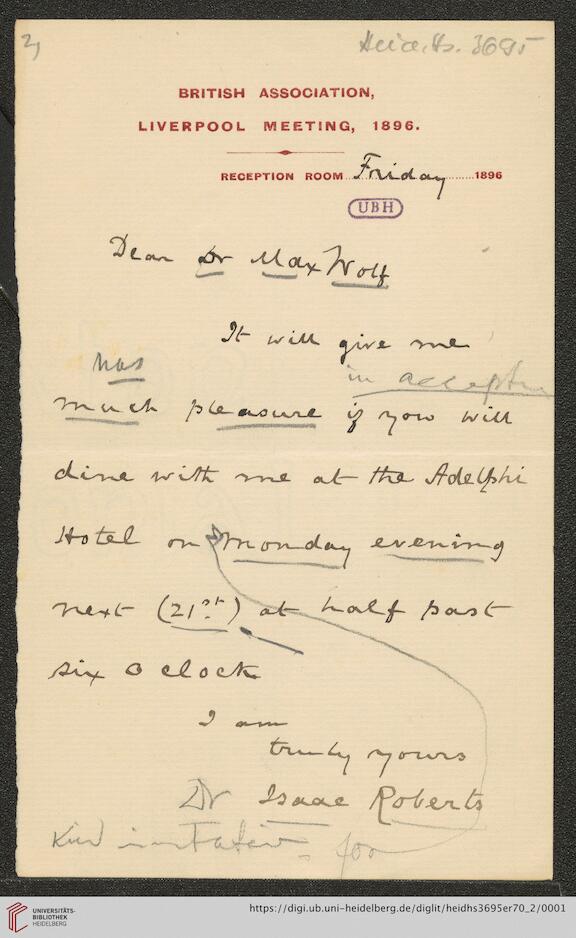 2)
Heid. Hs. 3695
BRITISH ASSOCIATION,
LIVERPOOL MEETING, 1896.
RECEPTION ROOM Friday 1896
UBH
Dear Dr Max Wolf
It will give me
has
in accepting
much pleasure if you will
dine with me at the Adelphi
Hotel on Monday evening
next (21st) at half past
six o clock
I am
truly yours
Dr Isaac Roberts
Kind invitation for
UNIVERSITÄTS-
BIBLIOTHEK
HEIDELBERG
https://digi.ub.uni-heidelberg.de/diglit/heidhs3695er70_2/0001